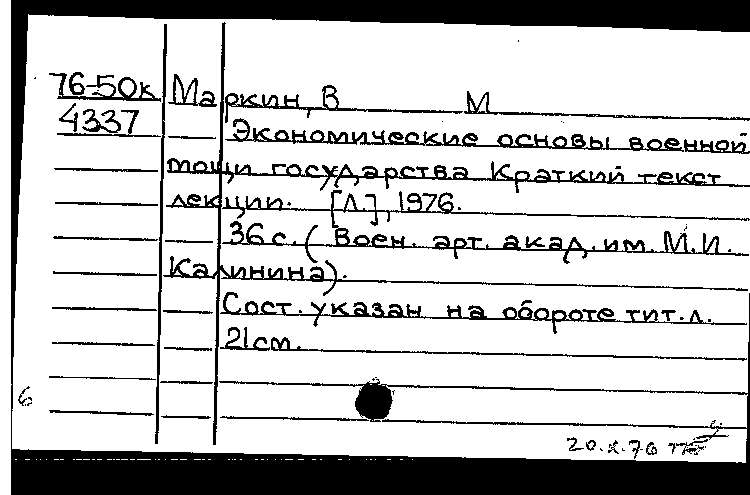 76-50к Маркин, В М
4337 Экономические основы военной
мощи государства Краткий текст
лекции. [Л.], 1976.
36 с. (Воен. арт. акад. им. М.И.
Калинина).
Сост. указан на обороте тит. л.
21 см.
6
20.X.76